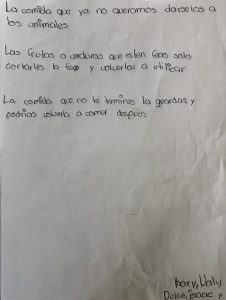 La comida que ya no queramos darselos a
los animales
Las frutas o verduras que esten feas solo
cortarles lo feo y volverlas a utilizar
La comida que no te termines la guardas y
podrias volverla a comer despues
Dulce, isaac y